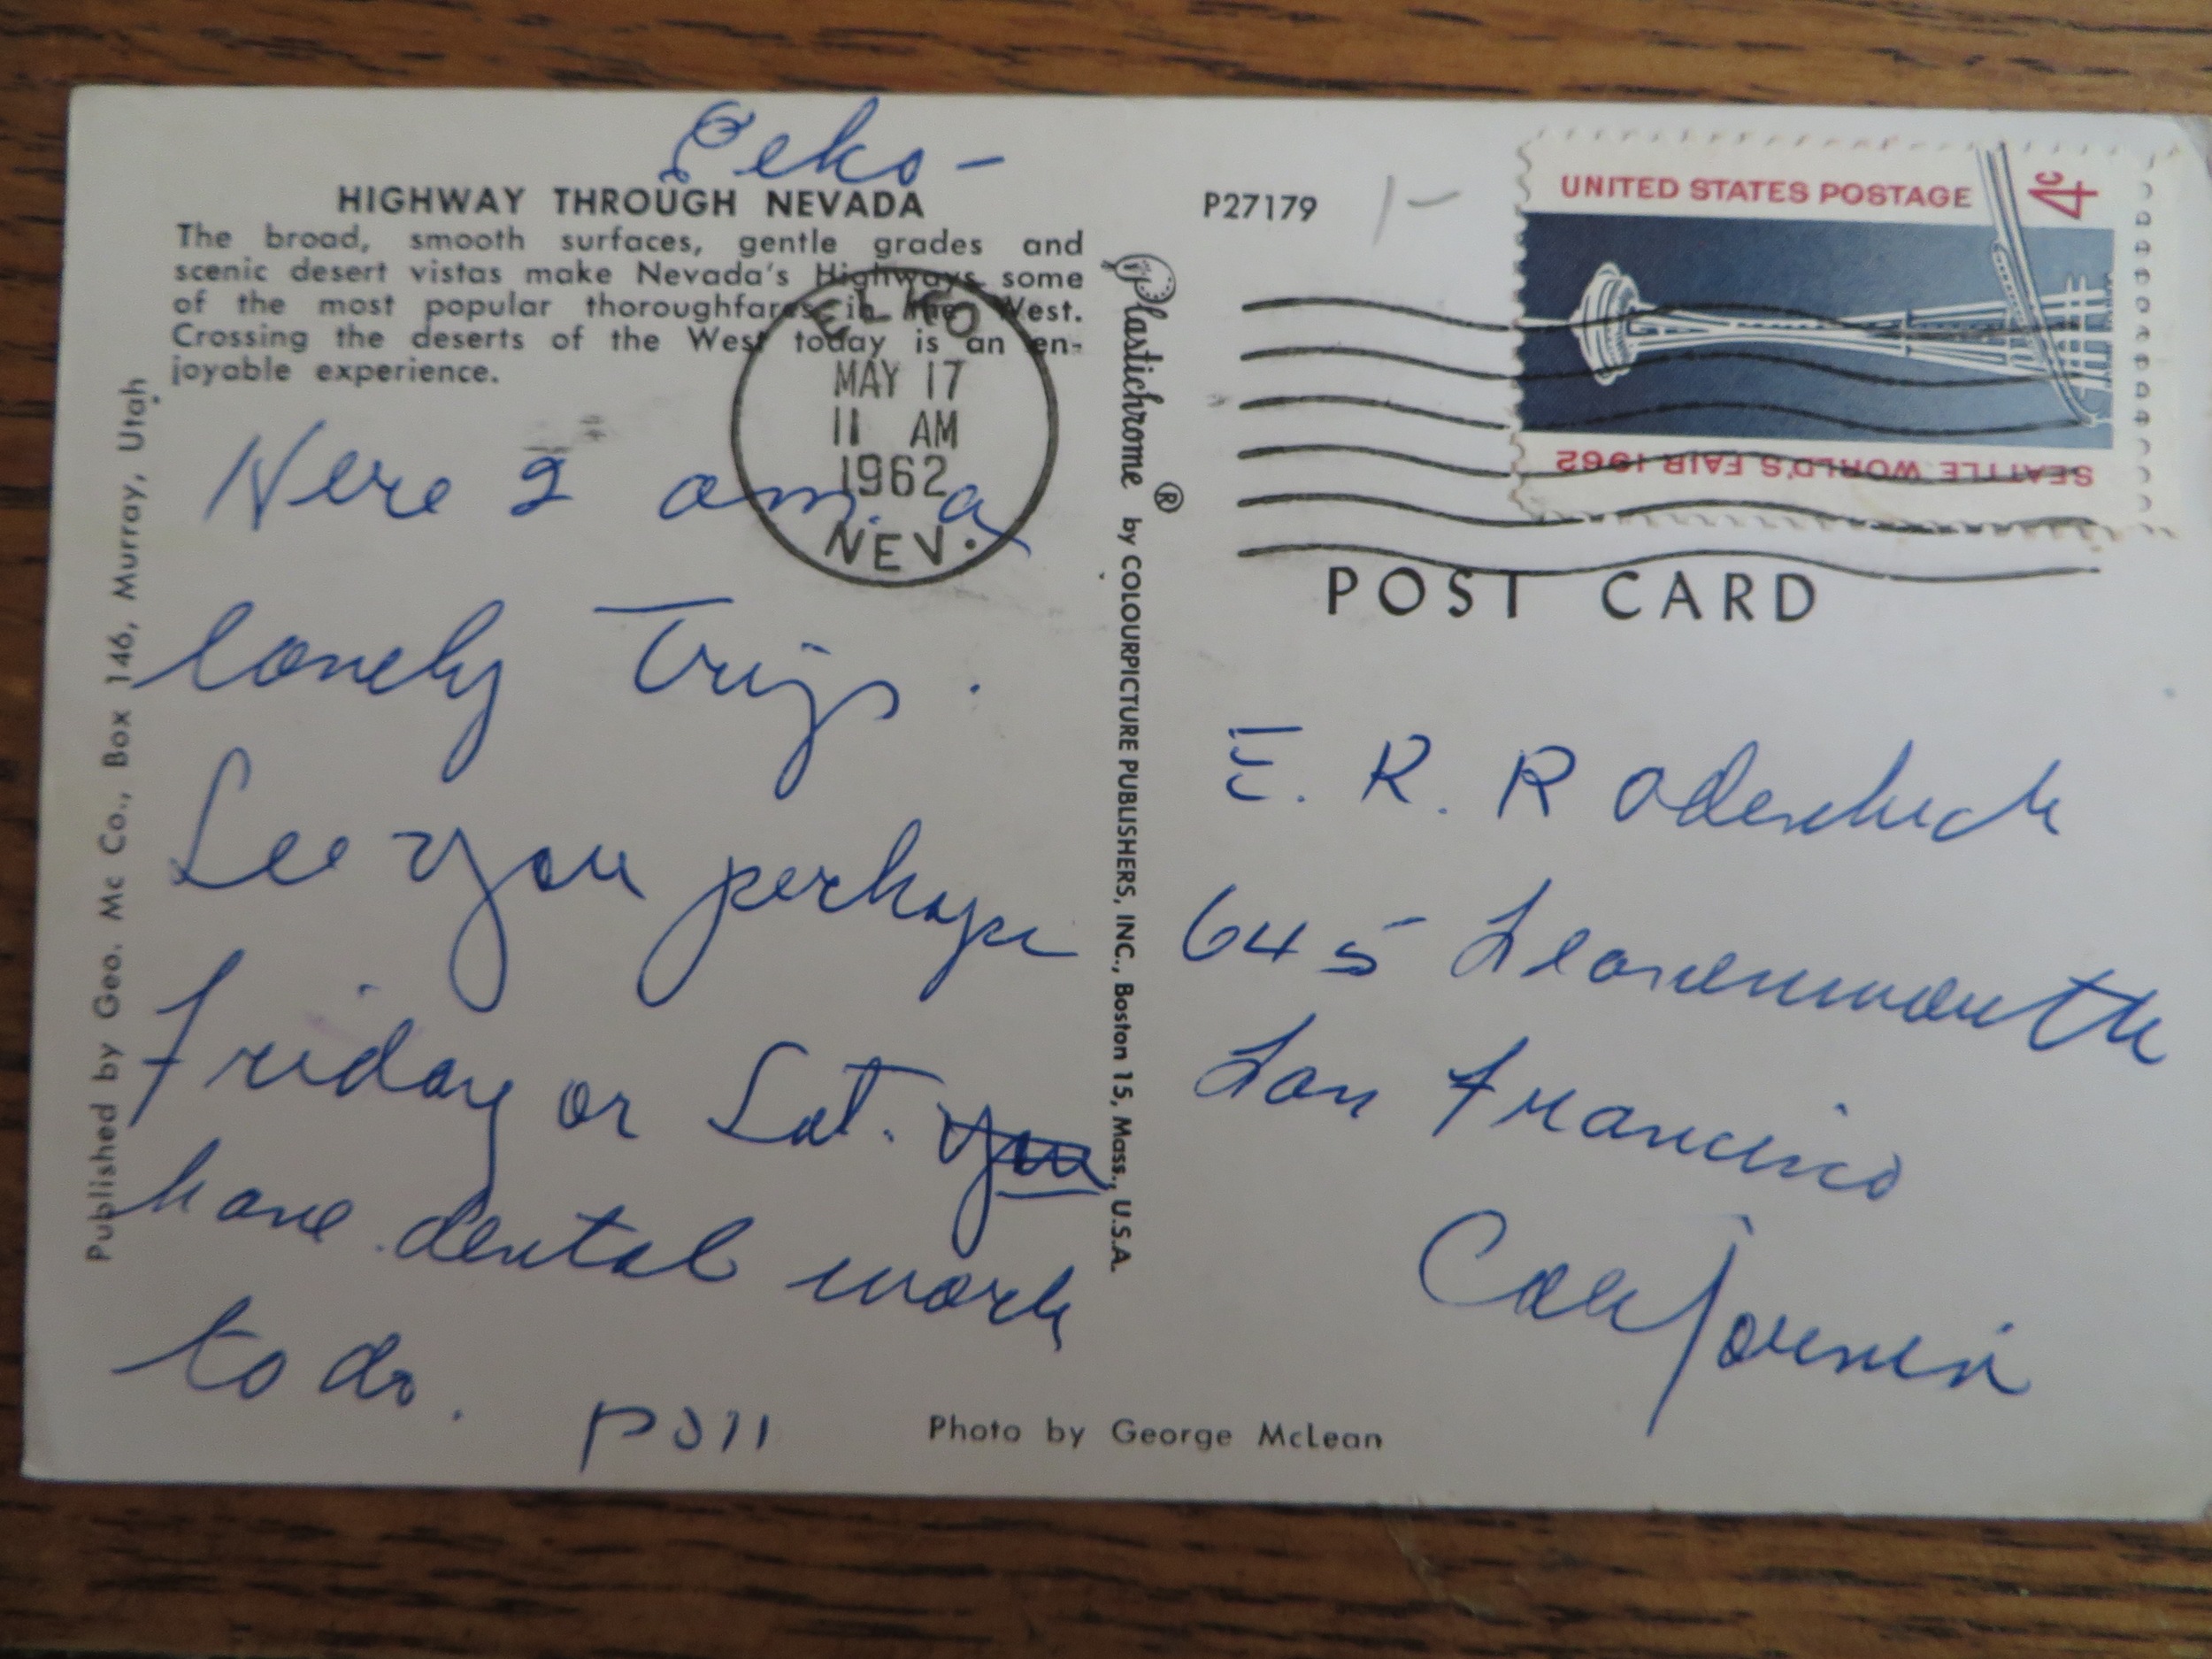 Elko -
HIGHWAY THROUGH NEVADA
The broad, smooth surfaces, gentle grades and
scenic desert vistas make Nevada's Highways some
of the most popular thoroughfares in the West.
Crossing the deserts of the West today is an en-
joyable experience.
ELKO
MAY 17
11 AM
1962
NEV.
Here I am. a
lonely Trip.
See you perhaps
Friday or Sat. you
have dental work
to do.
Published by Geo. Mc Co., Box 146, Murray, Utah
Plastichrome ® by COLOURPICTURE PUBLISHERS, INC., Boston 15, Mass., U.S.A.
P27179
1-
UNITED STATES POSTAGE 4c
SEATTLE WORLD'S FAIR 1962
POST CARD
E. R.
645 Leavenworth
San Francisco
California
Photo by George McLean